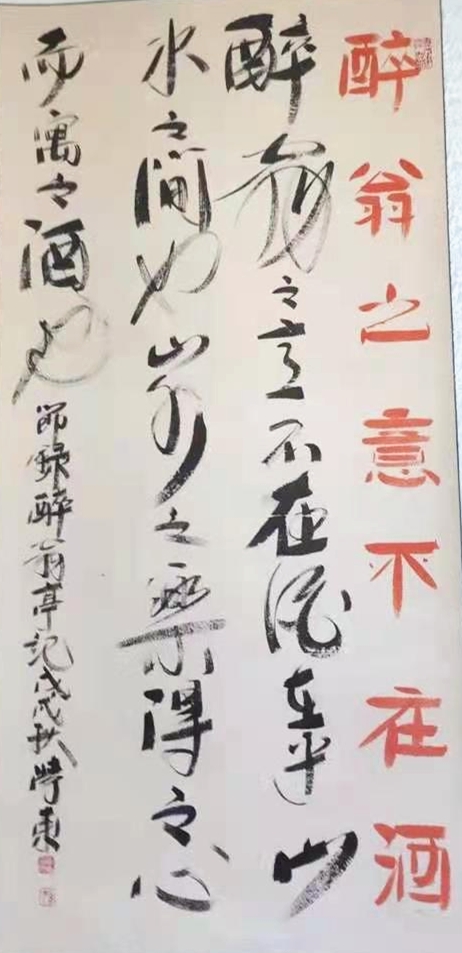 醉翁之意不在酒
醉翁之意不在酒在乎山
水之间也山水之樂得之心
而寓之酒也
节錄醉翁亭记戊戌秋